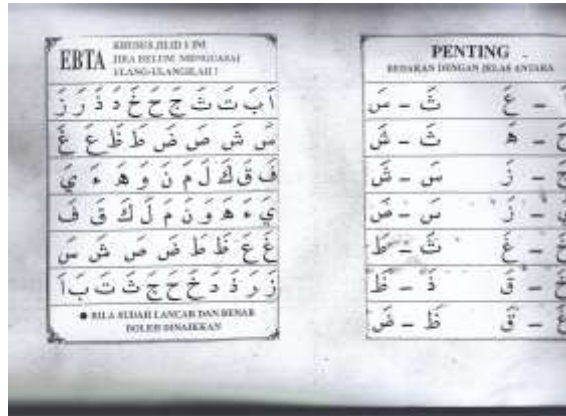 EBTA
KHUSUS JILID 1 INI
JIKA BELUM MENGUASAI
ULANG-ULANGILAH !
اَ بَ تَ ثَ جَ حَ خَ دَ ذَ رَ زَ
سَ شَ صَ ضَ طَ ظَ عَ غَ
فَ قَ كَ لَ مَ نَ وَ هَ ءَ يَ
يَ ءَ هَ وَ نَ مَ لَ كَ قَ فَ
غَ عَ ظَ طَ ضَ صَ شَ سَ
زَ رَ ذَ دَ خَ حَ جَ ثَ تَ بَ اَ
● BILA SUDAH LANCAR DAN BENAR
BOLEH DINAIKKAN
PENTING
BEDAKAN DENGAN JELAS ANTARA
عَ ثَ – سَ
هَ ثَ – شَ
زَ سَ – شَ
زَ سَ – صَ
غَ ثَ – طَ
قَ ذَ – ظَ
قَ ظَ – ضَ